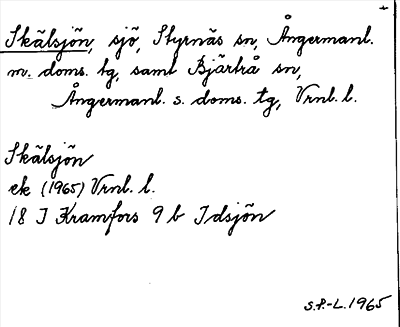 Skälsjön, sjö, Styrnäs sn, Ångermanl.
m. doms. tg, samt Bjärtrå sn,
Ångermanl. s. doms. tg, Vrnl. l.
Skälsjön
ek (1965) Vrnl. l.
18 I Kramfors 9 b Idsjön
S.P.-L. 1965